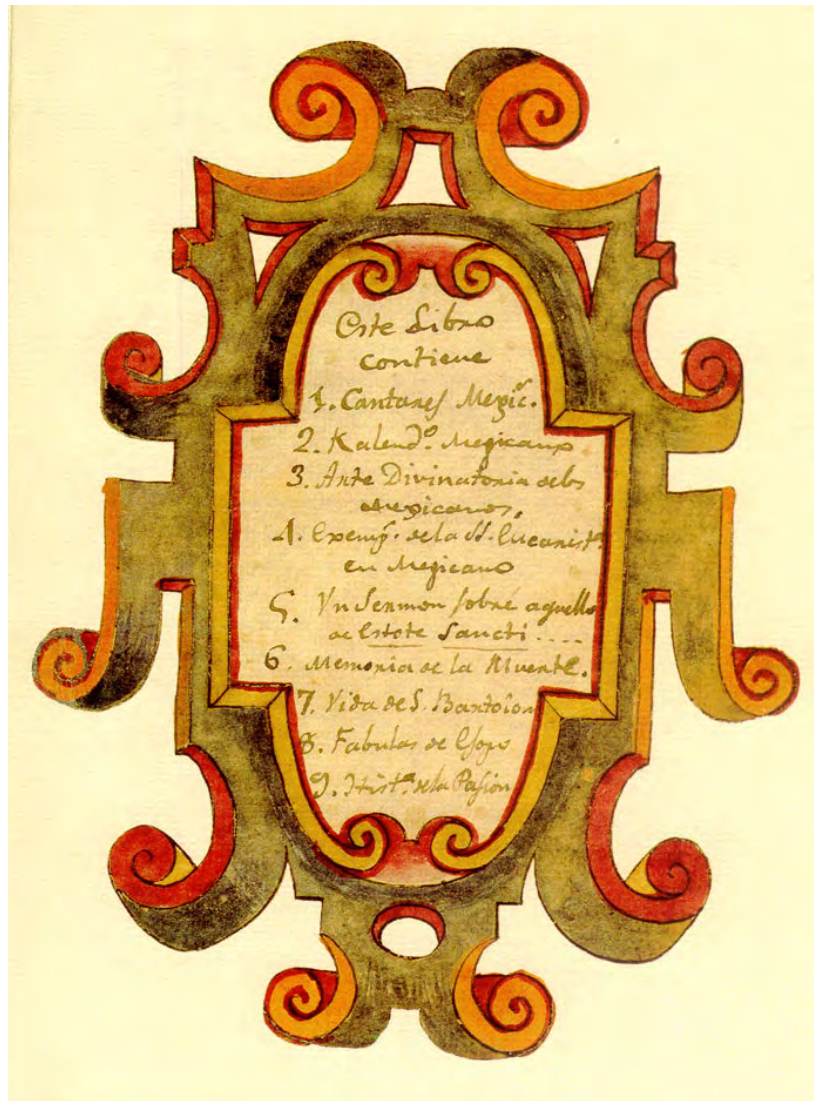 Este Libro
contiene
1. Cantares Mexic.ˢ
2. Kalend.º Megicano
3. Arte Divinatoria de los
Mexicanos.
4. Exemp.ˢ de la SS. Eucarist.ª
en Megicano
5. Vn Sermon sobre aquello
de Estote Sancti....
6. Memoria de la Muerte.
7. Vida de S. Bartolom
8. Fabulas de Esopo
9. Hist.ª de la Pasion